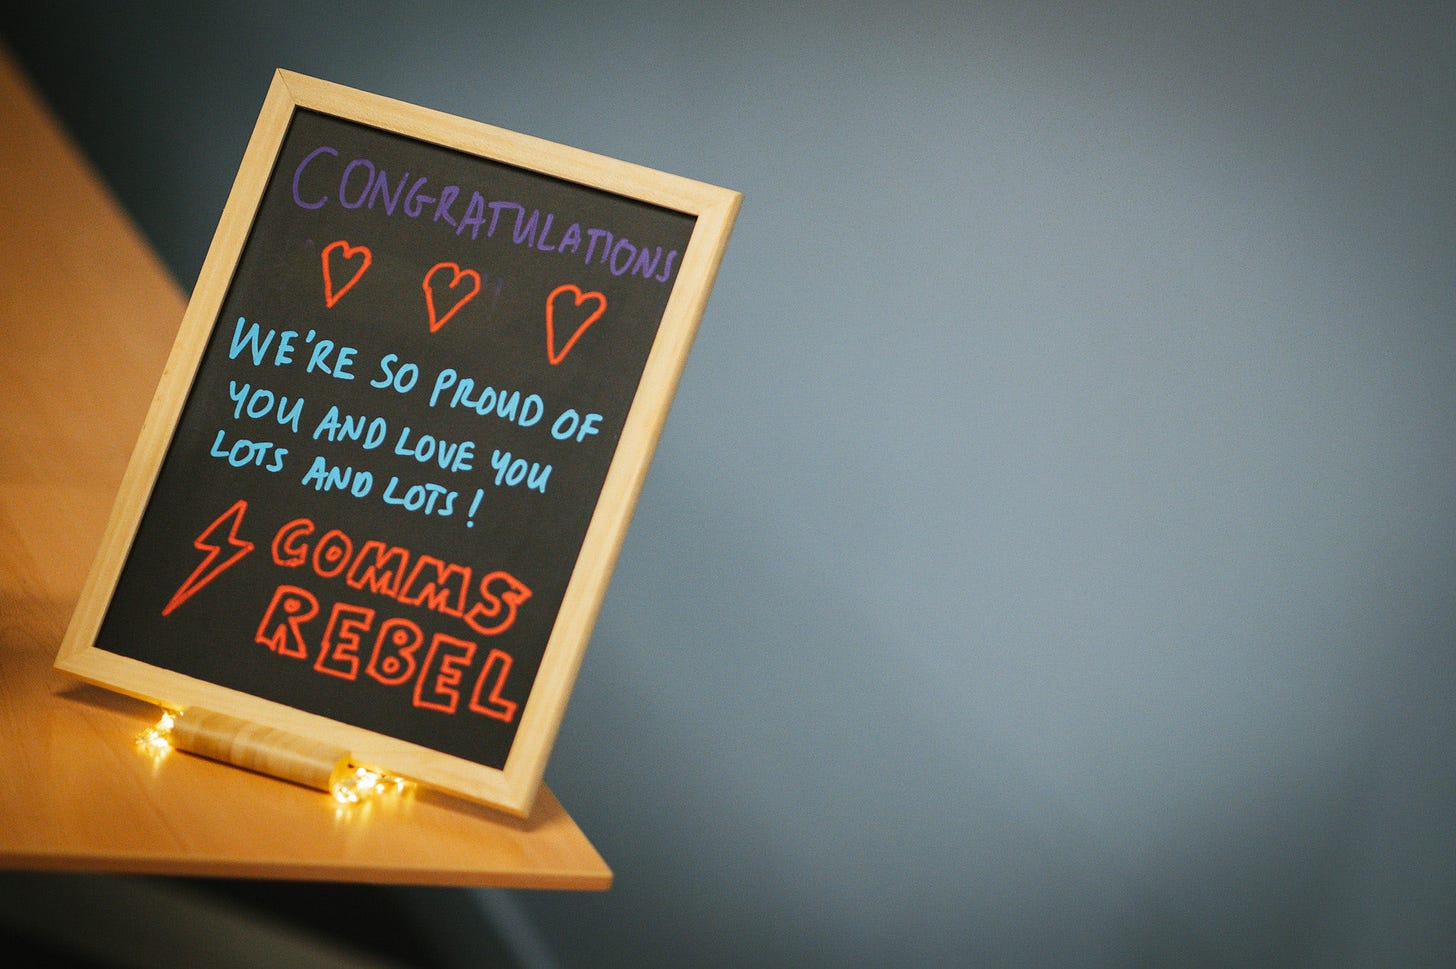 CONGRATULATIONS
WE'RE SO PROUD OF
YOU AND LOVE YOU
LOTS AND LOTS!
COMMS
REBEL